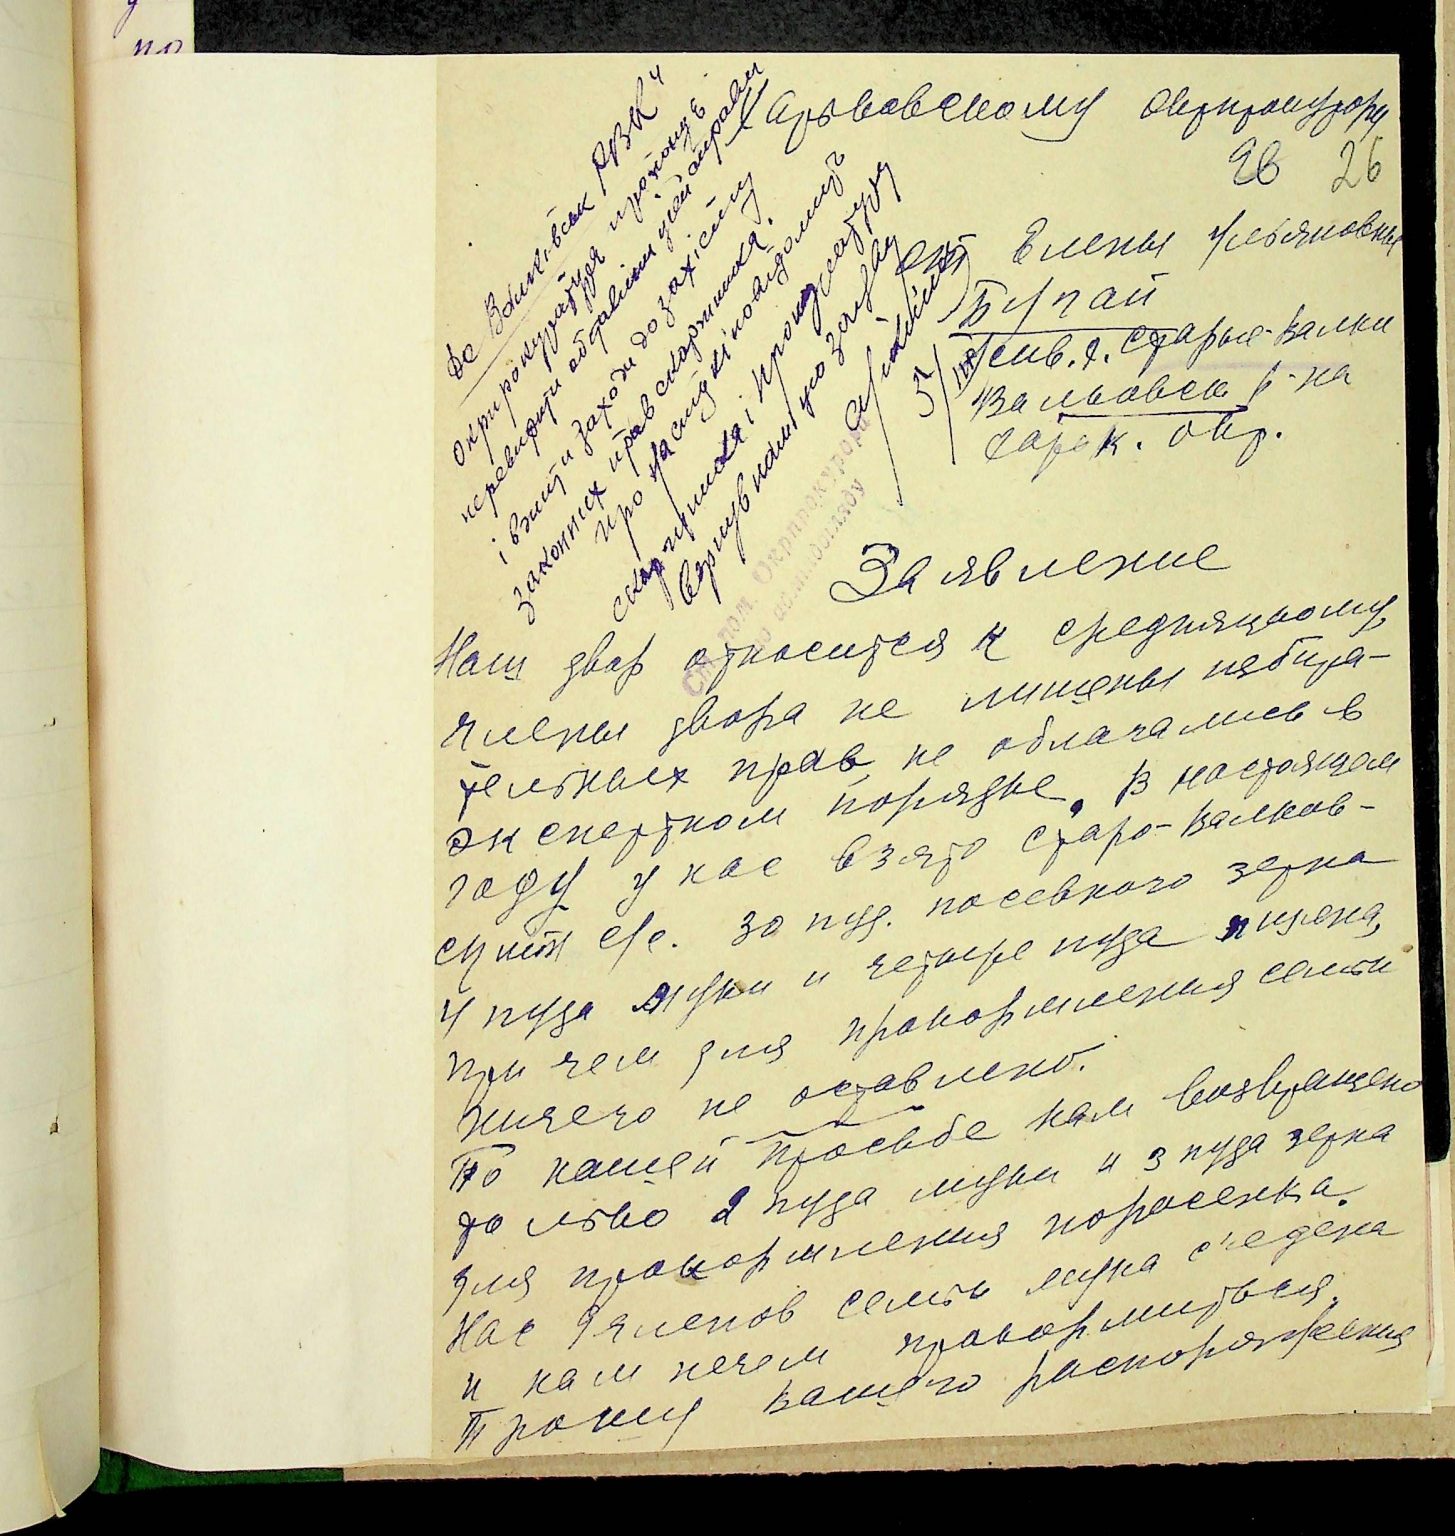 Харьковскому Окрпрокурору
26 26
от Елены Ульяновны
Бугай
жив. с. Старые-Валки
Валковск р-на
Харьк. Окр.
До Валківськ РВК
Окрпрокуратура пропонує
перевірити обставини цієї справи
і вжити заходи до захісту
законних прав скаржника.
Про наслідки повідомить
скаржника і прокуратуру
вернув нам цю заяву
5/III
Ст. пом. Окрпрокурора
по догляду
Заявление
Наш двор относится к средняцкому,
члены двора не лишены избира-
тельных прав, не облагались в
экспертном порядке. В настоящем
году у нас взято Старо-Валков-
ским с/с. 30 пуд. посевного зерна
4 пуда муки и четыре пуда пшена,
при чем для прокормления семьи
ничего не оставлено.
По нашей просьбе нам возвращено
только 2 пуда муки и 3 пуда зерна
для прокормления поросенка.
Нас 9 членов семьи мука съедена
и нам нечем прокормиться.
Прошу вашего распоряжения